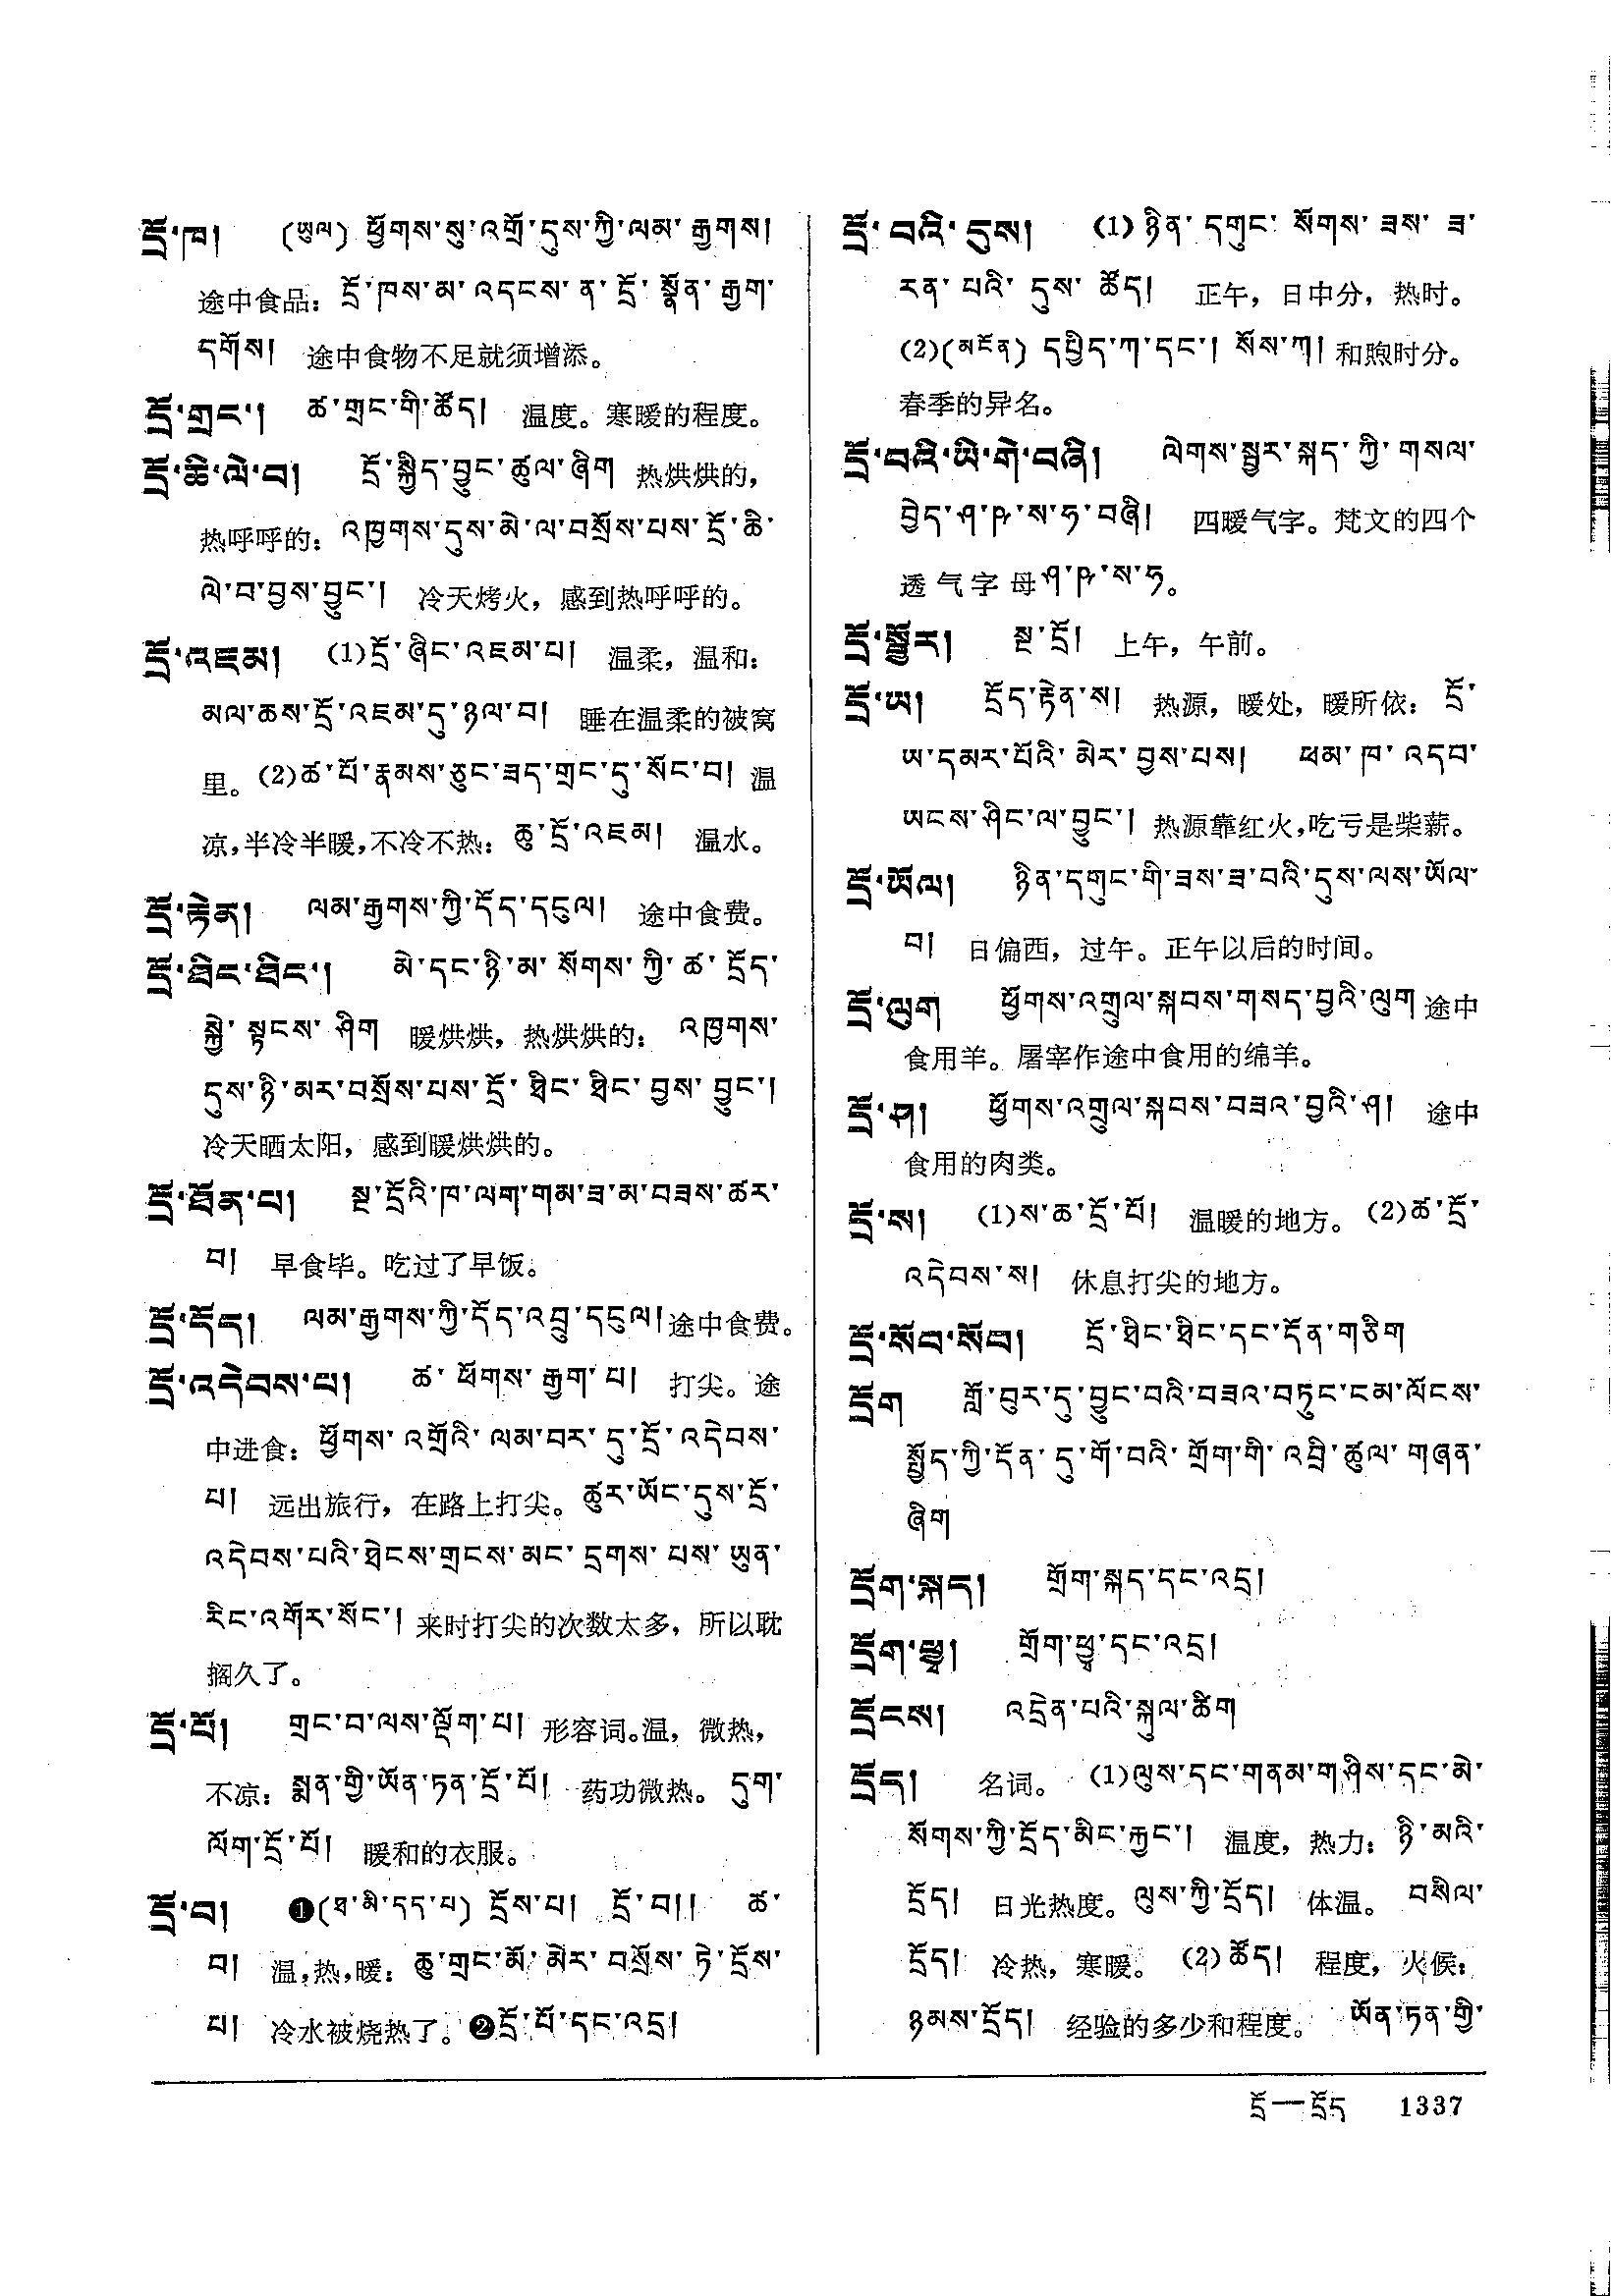 དྲོ་ཁ། (ཡུལ) ཕྱོགས་སུ་འགྲོ་དུས་ཀྱི་ལམ་རྒྱགས།
途中食品：དྲོ་ཁས་མ་འདངས་ན་དྲོ་སྣོན་རྒྱག་
དགོས། 途中食物不足就须增添。
དྲོ་གྲང་། ཚ་གྲང་གི་ཚོད། 温度。寒暖的程度。
དྲོ་ཆི་ལེ་བ། དྲོ་སྐྱིད་བྱུང་ཚུལ་ཞིག 热烘烘的，
热呼呼的：འཁྱགས་དུས་མེ་ལ་བསྲོས་པས་དྲོ་ཆི་
ལེ་བ་བྱས་བྱུང་། 冷天烤火，感到热呼呼的。
དྲོ་འཇམ། (1)དྲོ་ཞིང་འཇམ་པ། 温柔，温和：
མལ་ཆས་དྲོ་འཇམ་དུ་ཉལ་བ། 睡在温柔的被窝
里。(2)ཚ་པོ་རྣམས་ཅུང་ཟད་གྲང་དུ་སོང་བ། 温
凉，半冷半暖，不冷不热：ཆུ་དྲོ་འཇམ། 温水。
དྲོ་རྟེན། ལམ་རྒྱགས་ཀྱི་དོད་དངུལ། 途中食费。
དྲོ་ཐིང་ཐིང་། མེ་དང་ཉི་མ་སོགས་ཀྱི་ཚ་དྲོད་
སྐྱེ་སྟངས་ཤིག 暖烘烘，热烘烘的：འཁྱགས་
དུས་ཉི་མར་བསྲོས་པས་དྲོ་ཐིང་ཐིང་བྱས་བྱུང་།
冷天晒太阳，感到暖烘烘的。
དྲོ་ཐོན་པ། སྔ་དྲོའི་ཁ་ལག་གམ་ཟ་མ་བཟས་ཚར་
བ། 早食毕。吃过了早饭。
དྲོ་དོད། ལམ་རྒྱགས་ཀྱི་དོད་འབྲུ་དངུལ། 途中食费。
དྲོ་འདེབས་པ། ཚ་ཕོགས་རྒྱག་པ། 打尖。途
中进食：ཕྱོགས་འགྲོའི་ལམ་བར་དུ་དྲོ་འདེབས་
པ། 远出旅行，在路上打尖。ཚུར་ཡོང་དུས་དྲོ་
འདེབས་པའི་ཐེངས་གྲངས་མང་དྲགས་པས་ཡུན་
རིང་འགོར་སོང་། 来时打尖的次数太多，所以耽
搁久了。
དྲོ་པོ། གྲང་བ་ལས་ལྡོག་པ། 形容词。温，微热，
不凉：སྨན་གྱི་ཡོན་ཏན་དྲོ་པོ། 药功微热。དུག་
ལོག་དྲོ་པོ། 暖和的衣服。
དྲོ་བ། ❶(ཐ་མི་དད་པ) དྲོས་པ། དྲོ་བ།། ཚ་
བ། 温，热，暖：ཆུ་གྲང་མོ་མེར་བསྲོས་ཏེ་དྲོས་
པ། 冷水被烧热了。❷དྲོ་པོ་དང་འདྲ།
དྲོ་བའི་དུས། (1)ཉིན་དགུང་སོགས་ཟས་ཟ་
རན་པའི་དུས་ཚོད། 正午，日中分，热时。
(2)(མངོན) དཔྱིད་ཀ་དང་། སོས་ཀ། 和煦时分。
春季的异名。
དྲོ་བའི་ཡི་གེ་བཞི། ལེགས་སྦྱར་སྐད་ཀྱི་གསལ་
བྱེད་ཤ་ཥ་ས་ཧ་བཞི། 四暖气字。梵文的四个
透气字母ཤ་ཥ་ས་ཧ。
དྲོ་སྦྱོར། སྔ་དྲོ། 上午，午前。
དྲོ་ཡ། དྲོད་རྟེན་ས། 热源，暖处，暖所依：དྲོ་
ཡ་དམར་པོའི་མེར་བྱས་པས། ཕམ་ཁ་འདབ་
ཡངས་ཤིང་ལ་བྱུང་། 热源靠红火，吃亏是柴薪。
དྲོ་ཡོལ། ཉིན་དགུང་གི་ཟས་ཟ་བའི་དུས་ལས་ཡོལ་
བ། 日偏西，过午。正午以后的时间。
དྲོ་ལུག ཕྱོགས་འགྲུལ་སྐབས་གསད་བྱའི་ལུག 途中
食用羊。屠宰作途中食用的绵羊。
དྲོ་ཤ། ཕྱོགས་འགྲུལ་སྐབས་བཟའ་བྱའི་ཤ། 途中
食用的肉类。
དྲོ་ས། (1)ས་ཆ་དྲོ་པོ། 温暖的地方。(2)ཚ་དྲོ་
འདེབས་ས། 休息打尖的地方。
དྲོ་སོབ་སོབ། དྲོ་ཐིང་ཐིང་དང་དོན་གཅིག
དྲོག གློ་བུར་དུ་བྱུང་བའི་བཟའ་བཏུང་ངམ་ལོངས་
སྤྱོད་ཀྱི་དོན་དུ་གོ་བའི་གྲོག་གི་འབྲི་ཚུལ་གཞན་
ཞིག
དྲོག་སྐད། གྲོག་སྐད་དང་འདྲ།
དྲོག་ཕྱྭ། གྲོག་ཕྱྭ་དང་འདྲ།
དྲོངས། འདྲེན་པའི་སྐུལ་ཚིག
དྲོད། 名词。(1)ལུས་དང་གནམ་གཤིས་དང་མེ་
སོགས་ཀྱི་དྲོད་མིང་རྐྱང་། 温度，热力：ཉི་མའི་
དྲོད། 日光热度。ལུས་ཀྱི་དྲོད། 体温。བསིལ་
དྲོད། 冷热，寒暖。(2)ཚོད། 程度，火候：
ཉམས་དྲོད། 经验的多少和程度。ཡོན་ཏན་གྱི་
དྲོ—དྲོད 1337